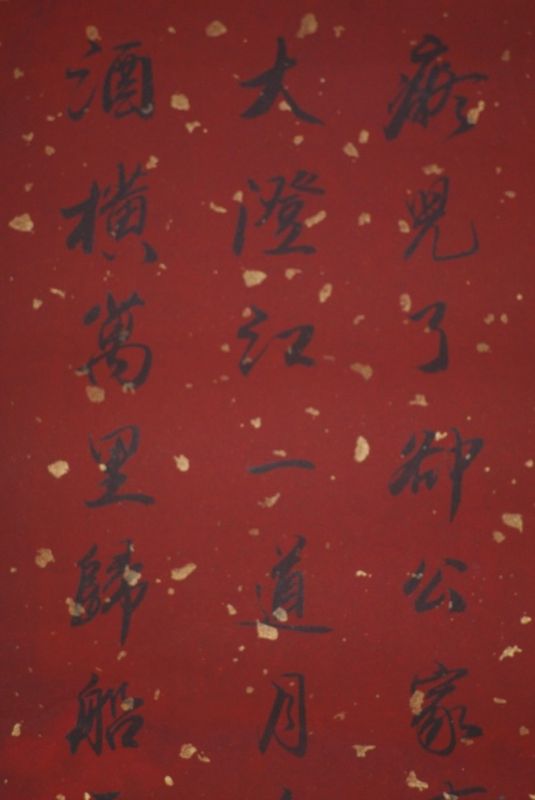 癡兒了卻公家
大澄江一道月
酒橫萬里歸船